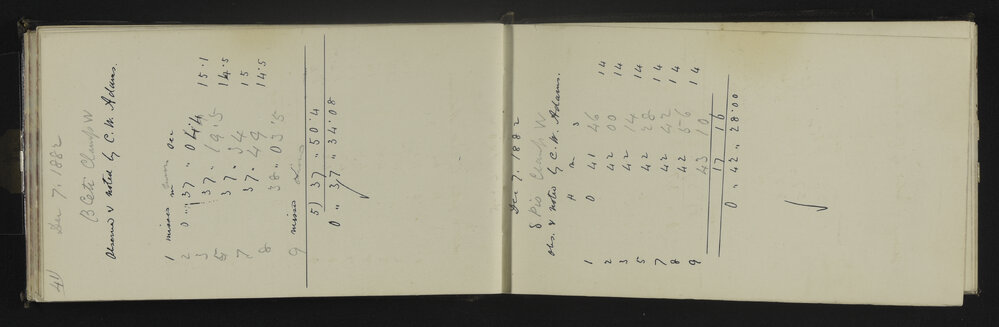 41
Dec 7. 1882
β Ceti Clamp W
Observed & noted by C. W. Adams.
1 misses
2 0 " 37 " 04.4
3 37 . 19.5 15.1
5 37 . 34 14.5
7 37 . 49 15
8 38 . 03.5 14.5
9 misses
5) 37 " 50.4
0 " 37 " 34.08
Dec 7. 1882
δ Pis Clamp W
obs. & noted by C. W. Adams.
H m s
1 0 41 46
2 42 00 14
3 42 14 14
5 42 28 14
7 42 42 14
8 42 56 14
9 43 10 14
17 16
0 " 42 " 28.00